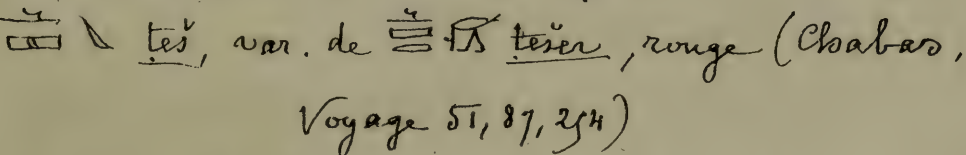 teš, var. de tešer, rouge (Chabas,
Voyage 51, 87, 254)